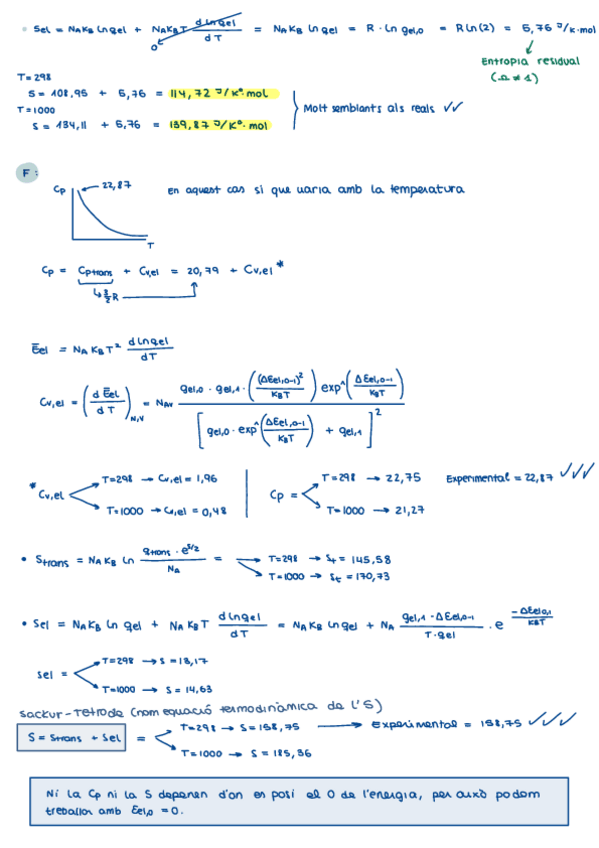 • Sel = NAKB ln qel + NAKBT d ln qel / dT = NAKB ln qel = R · ln gel,0 = R ln(2) = 5,76 J/K·mol
0
Entropia residual
(Ω ≠ 1)
T=298
S = 108,95 + 5,76 = 114,72 J/Kº·mol
T=1000
S = 134,11 + 5,76 = 139,87 J/Kº·mol
Molt semblants als reals ✓✓
F:
Cp 22,87
T
en aquest cas si que varia amb la temperatura
Cp = Cptrans + Cv,el = 20,79 + Cv,el *
↳ 5/2 R
Ēel = NA KB T² d ln qel / dT
Cv,el = (d Ēel / dT)N,V = NAV gel,0 · gel,1 · ((ΔEel,0-1)² / KBT) exp^(ΔEel,0-1 / KBT) / [gel,0 · exp^(ΔEel,0-1 / KBT) + gel,1]²
* Cv,el
T=298 → Cv,el = 1,96
T=1000 → Cv,el = 0,48
Cp =
T=298 → 22,75
T=1000 → 21,27
Experimental = 22,87 ✓✓✓
• Strans = NAKB ln qtrans · e^5/2 / NA =
T=298 → St = 145,58
T=1000 → St = 170,73
• Sel = NAKB ln qel + NAKBT d ln qel / dT = NAKB ln qel + NA gel,1 · ΔEel,0-1 / T · qel · e^ -ΔEel,0,1 / KBT
Sel =
T=298 → S = 13,17
T=1000 → S = 14,63
Sackur-Tetrode (nom equació termodinàmica de l'S)
S = Strans + Sel =
T=298 → S = 158,75 → Experimental = 158,75 ✓✓✓
T=1000 → S = 185,36
Ni la Cp ni la S depenen d'on es posi el 0 de l'energia, per això podem
treballar amb Eel,0 = 0.